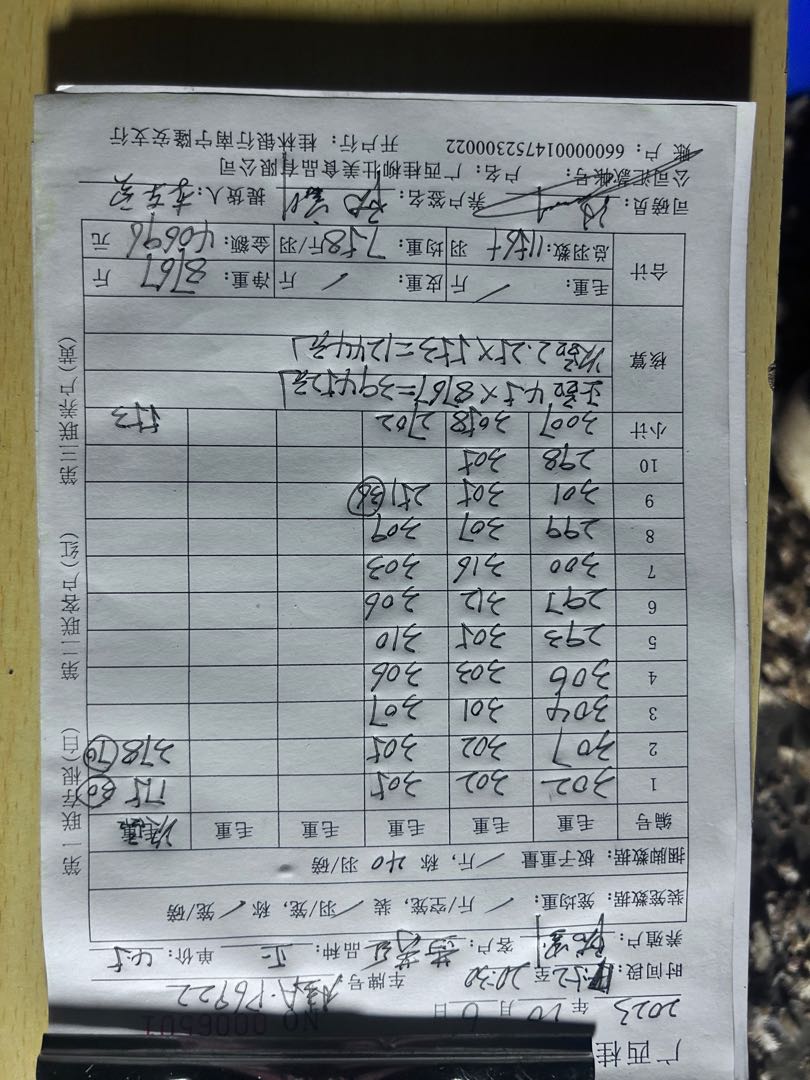 广西桂
NO 0006501
2023 年 10 月 6 日
时间段: 至 20:30 车牌号 桂A·P6922
养殖户 客户: 品种: 正 单价: 4.5
装笼数据: 笼均重: / 斤/空笼, 装 / 羽/笼, 称 / 笼/磅
捆脚数据: 板子重量 / 斤, 称 40 羽/磅
编号 毛重 毛重 毛重 毛重 毛重
1 302 302 305 175 30
2 307 302 305 378 70
3 304 301 307
4 306 303 306
5 293 305 310
6 297 312 306
7 300 316 303
8 299 307 309
9 301 305 251 36
10 298 305
小计 3007 3058 2702 553
核算 正品 4.5×8767=39452元
次品 2.25×553=1244元
合计 毛重: / 斤 皮重: / 斤 净重: 8767 斤
总羽数: 羽 均重: 7.58 斤/羽 金额: 40696 元
司磅员: 养户签名: 提货人:
公司汇款帐号: 户名: 广西桂柳壮美食品有限公司
账户: 660000014752300022 开户行: 桂林银行南宁隆安支行
第一联存根(白) 第二联客户(红) 第三联养户(黄)